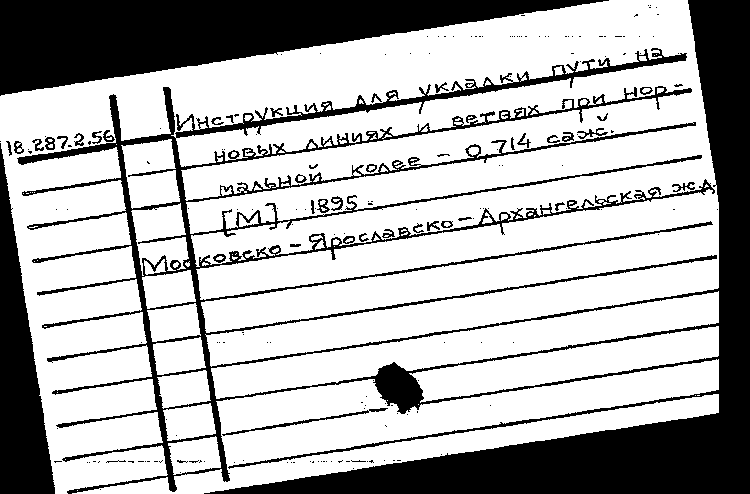 18.287.2.56
Инструкция для укладки пути на
новых линиях и ветвях при нор-
мальной колее - 0,714 саж.
[М.], 1895.
Московско-Ярославско-Архангельская ж.д.